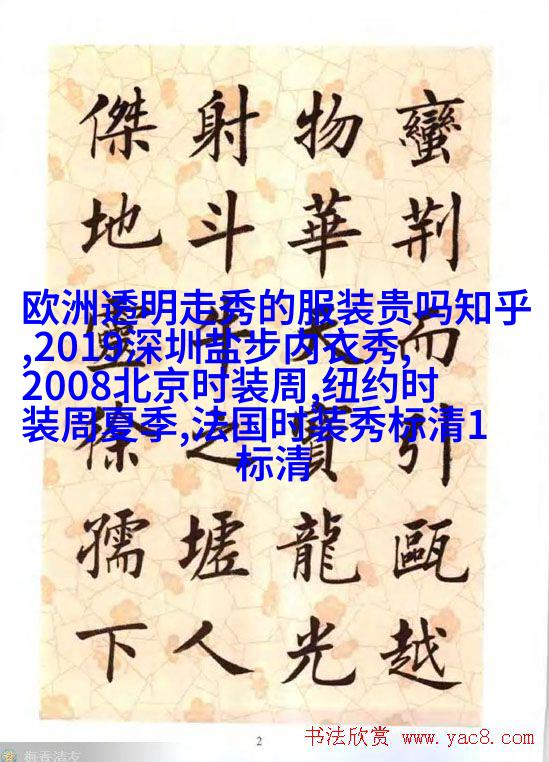 蠻荊而引甌越
物華天寶龍光
射斗牛之墟人
傑地靈徐孺下
欧洲透明走秀的服装贵吗知乎
,2019深圳盐步内衣秀,
2008北京时装周,纽约时
装周夏季,法国时装秀标清1
标清
2
书法欣赏 www.yac8.com